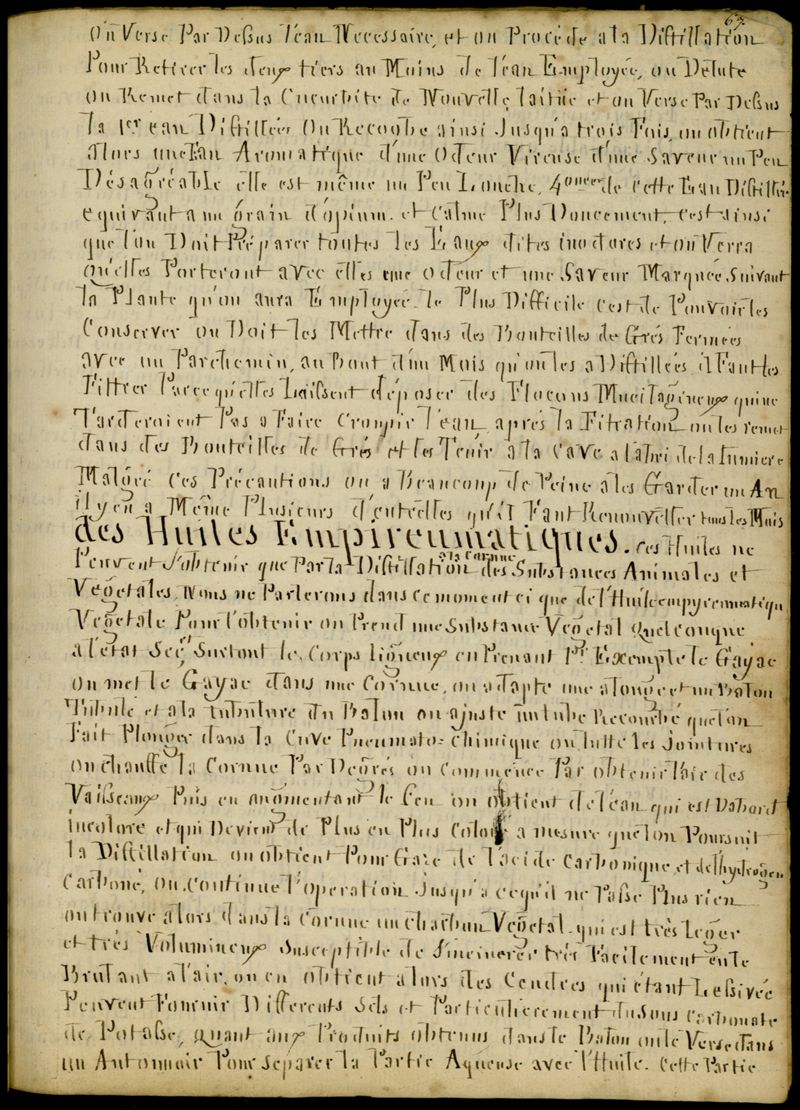 67.
On Verse Par Dessus l'eau Necessaire, et on Procéde a la Distillation
Pour Retirer les deux tiers au Moins de l'eau Employée, ou Delute
on Remet dans la Cucurbite de Nouvelle laitüe et on Verse Par Dessus
la 1er eau Distillée On Recoobe ainsi Jusqu'a trois Fois, on obtient
alors une Eau Aromatique d'une Odeur Vireuse d'une Saveur un Peu
Désagréable elle est même un Peu Louche, 4 onces de cette Eau Distillée
equivaut a un grain d'opium. et Calme Plus Doucement, c'est ainsi
que l'on Doit Préparer toutes les Eaux dites inodores et on Verra
qu'elles Porteront avec elles une Odeur et une Saveur Marquée Suivant
la Plante qu'on aura Employée. le Plus Difficile c'est de Pouvoir les
Conserver on Doit les Mettre dans des Bouteilles de Grés Fermées
avec un Parchemin, au Bout d'un Mois qu'on les a Distillées il Faut les
Filtrer Parce qu'elles Laissent déposer des Flocons Mucilagineux qui ne
Tarderoient Pas a Faire Croupir l'eau, après la Filtration on les remet
dans des Bouteilles de Grés et les Tenir a la Cave a l'abri de la lumiere
Malgré Ces Précautions on a Beaucoup de Peine a les Garder un An
il y en a Même Plusieurs d'entrelles qu'il Faut Renouveller tous les Mois
des Huiles Empireumatiques. ces Huiles ne
Peuvent S'obtenir que Par la Distillation a la Cornue des Substances Animales et
Végétales. Nous ne Parlerons dans ce moment ci que de l'Huile empyreumatique
Végétale Pour l'obtenir on Prend une Substance Végétal Quelconque
a l'état Sec, et Surtout le Corps ligneux en Prenant Pr Exemple le Gayac
on met le Gayac dans une Cornue, on adapte une alonge et un Balon
Tubulé et a la tubulure du Balon on ajuste un tube Recourbé que l'on
Fait Plonger dans la Cuve Pneumato-Chimique on lutte les Jointures
on chauffe la Cornue Par Degrés on Commence Par obtenir l'air des
Vaisseaux Puis en augmentant le feu on obtient de l'eau qui est D'abord
incolore et qui Devient de Plus en Plus Coloré a mesure que l'on Poursuit
la Distillation on obtient Pour Gaze de l'acide Carbonique, et de l'hydrogen
Carboné, on Continue l'operation Jusqu'a ce qu'il ne Passe Plus rien
on trouve alors dans la Cornue un charbon Végétal. qui est très Leger
et très Volumineux Susceptible de S'incinerer très Facilement en le
Brulant a l'air, on en obtient alors des Cendres qui étant Lessivée
Peuvent Fournir Differents Sels et Particulierement du Sous Carbonate
de Potasse, Quant aux Produits obtenus dans le Balon on le Verse dans
un Antonnoir Pour Séparer la Partie Aqueuse avec l'Huile. Cette Partie